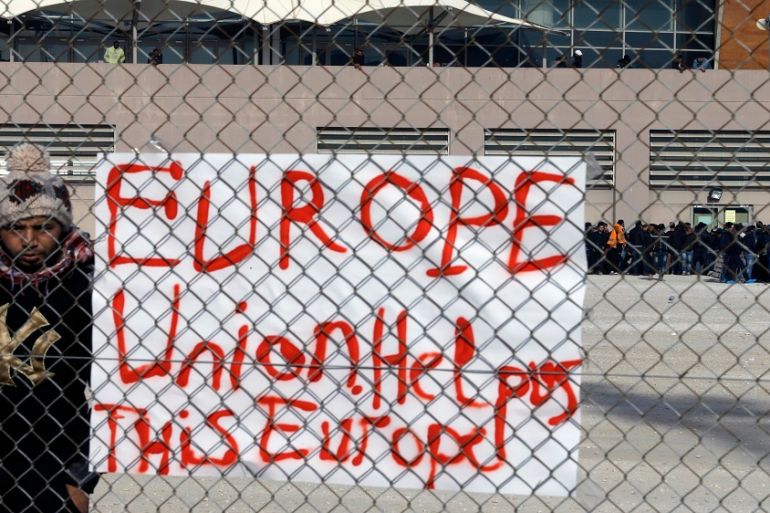 EUROPE
Union.HeLp
ps
This Europe